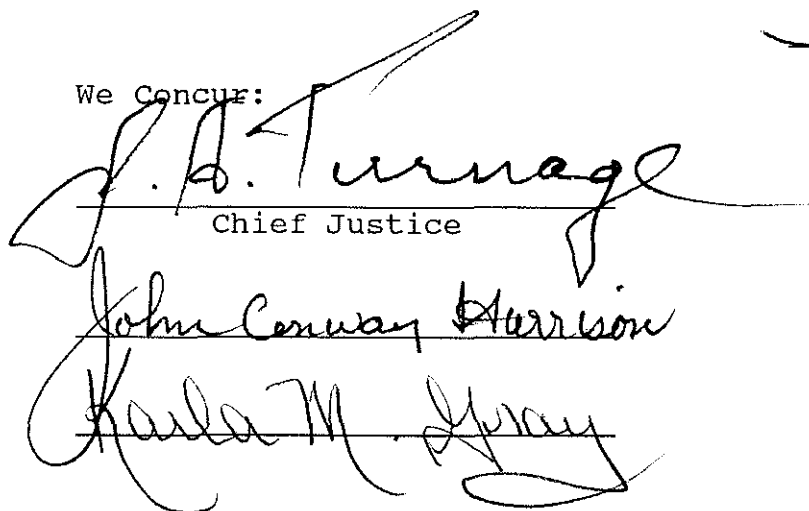 We Concur:
J. A. Turnage
Chief Justice
John Conway Harrison
Karla M. Gray